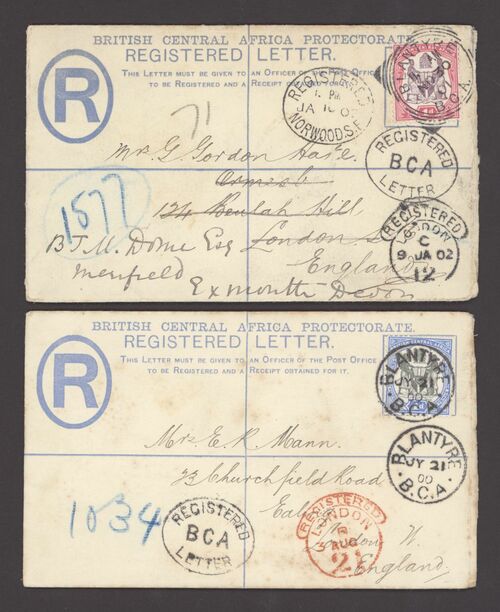 BRITISH CENTRAL AFRICA PROTECTORATE.
REGISTERED LETTER.
THIS LETTER MUST BE GIVEN TO AN OFFICER OF THE POST OFFICE
TO BE REGISTERED AND A RECEIPT OBTAINED FOR IT.
R
71
REGISTERED
JA 10 02
NORWOOD S.E.
BLANTYRE
B.C.A.
Mr. G. Gordon Hake.
REGISTERED
BCA
LETTER
1577
Ormesb
124 Beulah Hill
REGISTERED
LONDON
C
9 JA 02
12
B.T.M. Dome Esq London
England
Exmouth Devon
BRITISH CENTRAL AFRICA PROTECTORATE.
REGISTERED LETTER.
THIS LETTER MUST BE GIVEN TO AN OFFICER OF THE POST OFFICE
TO BE REGISTERED AND A RECEIPT OBTAINED FOR IT.
R
BLANTYRE
JY 21
00
B.C.A.
Mrs E. R. Mann.
BLANTYRE
JY 21
00
B.C.A.
23 Churchfield Road
1034
REGISTERED
BCA
LETTER
REGISTERED
LONDON
3 AUG
Ealing
London W.
England.